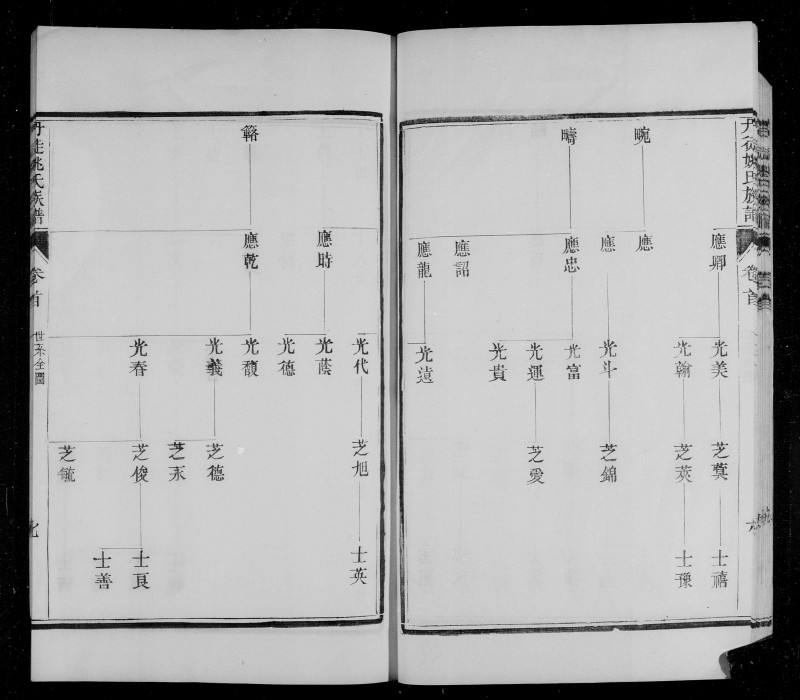 丹徒姚氏族譜
卷首
畹
疇
應卿
應
應
應忠
應詔
應龍
光美
光翰
光斗
光富
光運
光貴
光遠
芝蓂
芝莢
芝錦
芝愛
士禧
士豫
簵
應時
應乾
光代
光蔭
光德
光馥
光義
光春
芝旭
芝德
芝永
芝俊
芝毓
士英
士良
士善
丹徒姚氏族譜
卷首
世系全圖